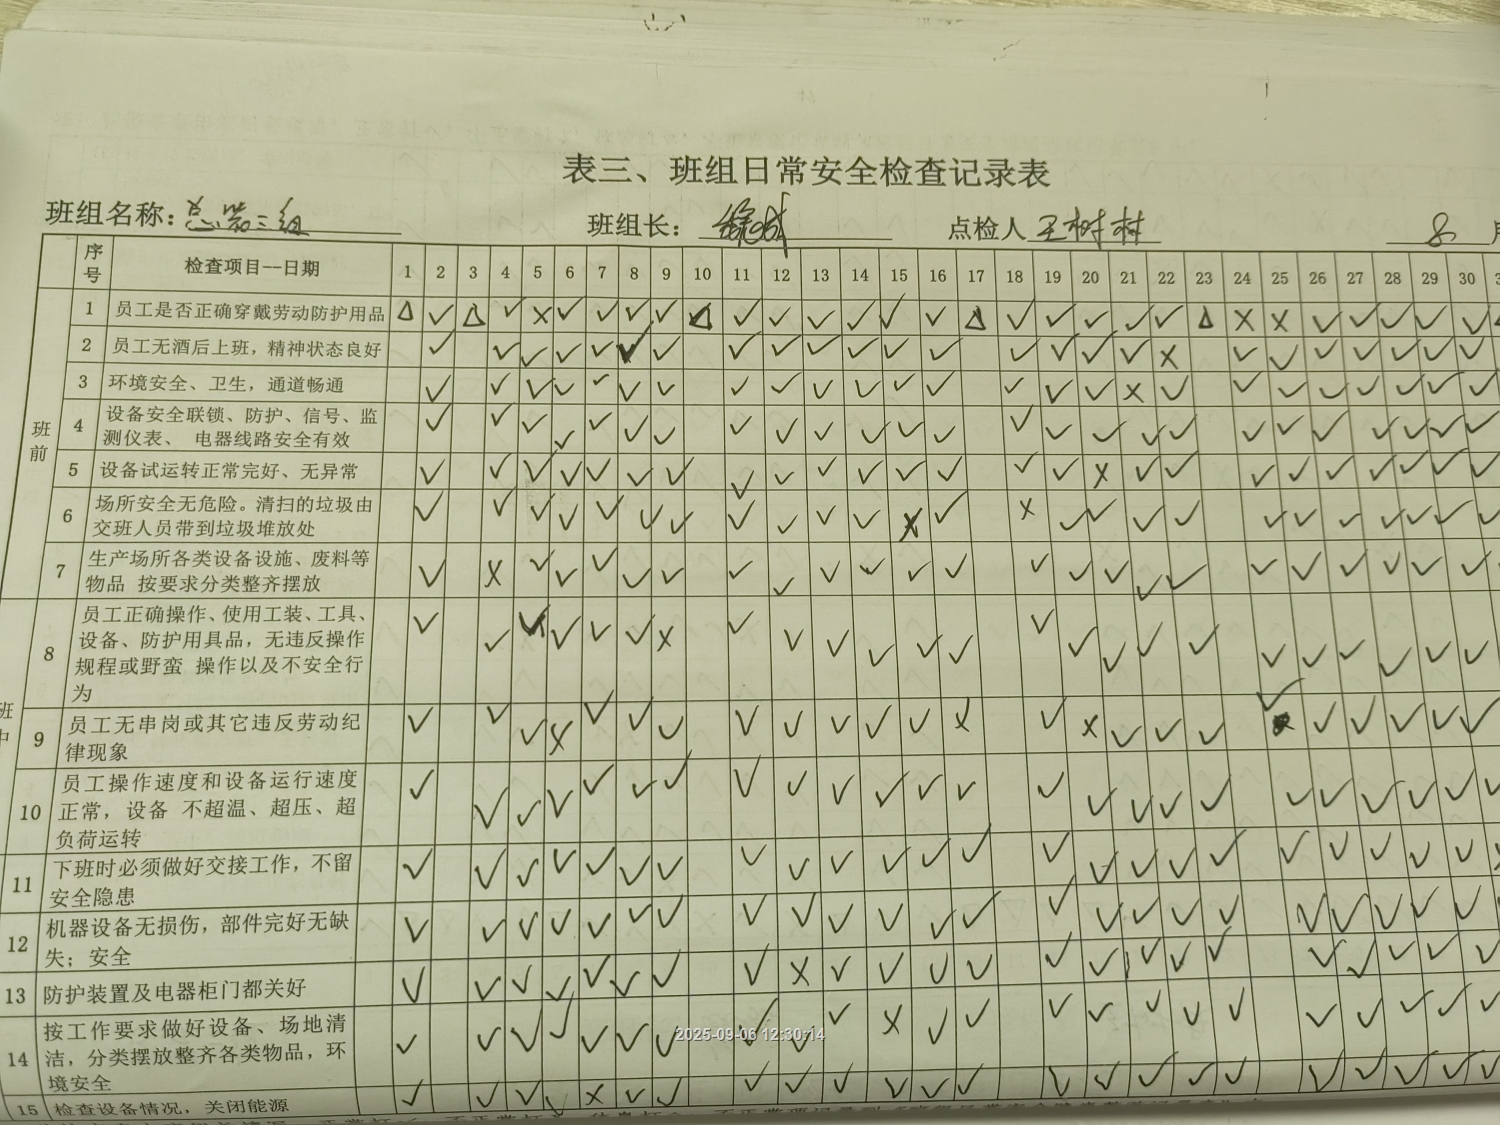 表三、班组日常安全检查记录表
班组名称：总装三组 班组长： 点检人 王树村 8 月
序号 检查项目--日期 1 2 3 4 5 6 7 8 9 10 11 12 13 14 15 16 17 18 19 20 21 22 23 24 25 26 27 28 29 30
班前
1 员工是否正确穿戴劳动防护用品 △ ✓ △ ✓ × ✓ ✓ ✓ ✓ △ ✓ ✓ ✓ ✓ ✓ ✓ △ ✓ ✓ ✓ ✓ ✓ △ × × ✓ ✓ ✓ ✓ ✓
2 员工无酒后上班，精神状态良好
3 环境安全、卫生，通道畅通
4 设备安全联锁、防护、信号、监
测仪表、 电器线路安全有效
5 设备试运转正常完好、无异常
6 场所安全无危险。清扫的垃圾由
交班人员带到垃圾堆放处
7 生产场所各类设备设施、废料等
物品 按要求分类整齐摆放
班中
8 员工正确操作、使用工装、工具、
设备、防护用具品，无违反操作
规程或野蛮 操作以及不安全行
为
9 员工无串岗或其它违反劳动纪
律现象
10 员工操作速度和设备运行速度
正常，设备 不超温、超压、超
负荷运转
11 下班时必须做好交接工作，不留
安全隐患
12 机器设备无损伤，部件完好无缺
失；安全
13 防护装置及电器柜门都关好
14 按工作要求做好设备、场地清
洁，分类摆放整齐各类物品，环
境安全
15 检查设备情况，关闭能源
2025-09-06 12:30:14